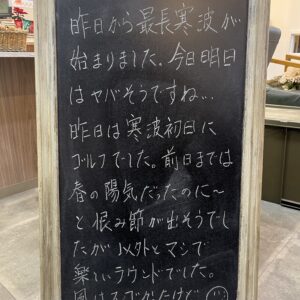 昨日から最長寒波が
始まりました。今日明日
はヤバそうですね…
昨日は寒波初日に
ゴルフでした。前日までは
春の陽気だったのに〜
と恨み節が出そうでし
たが以外とマシで
楽しいラウンドでした。
風はスゴかったけど